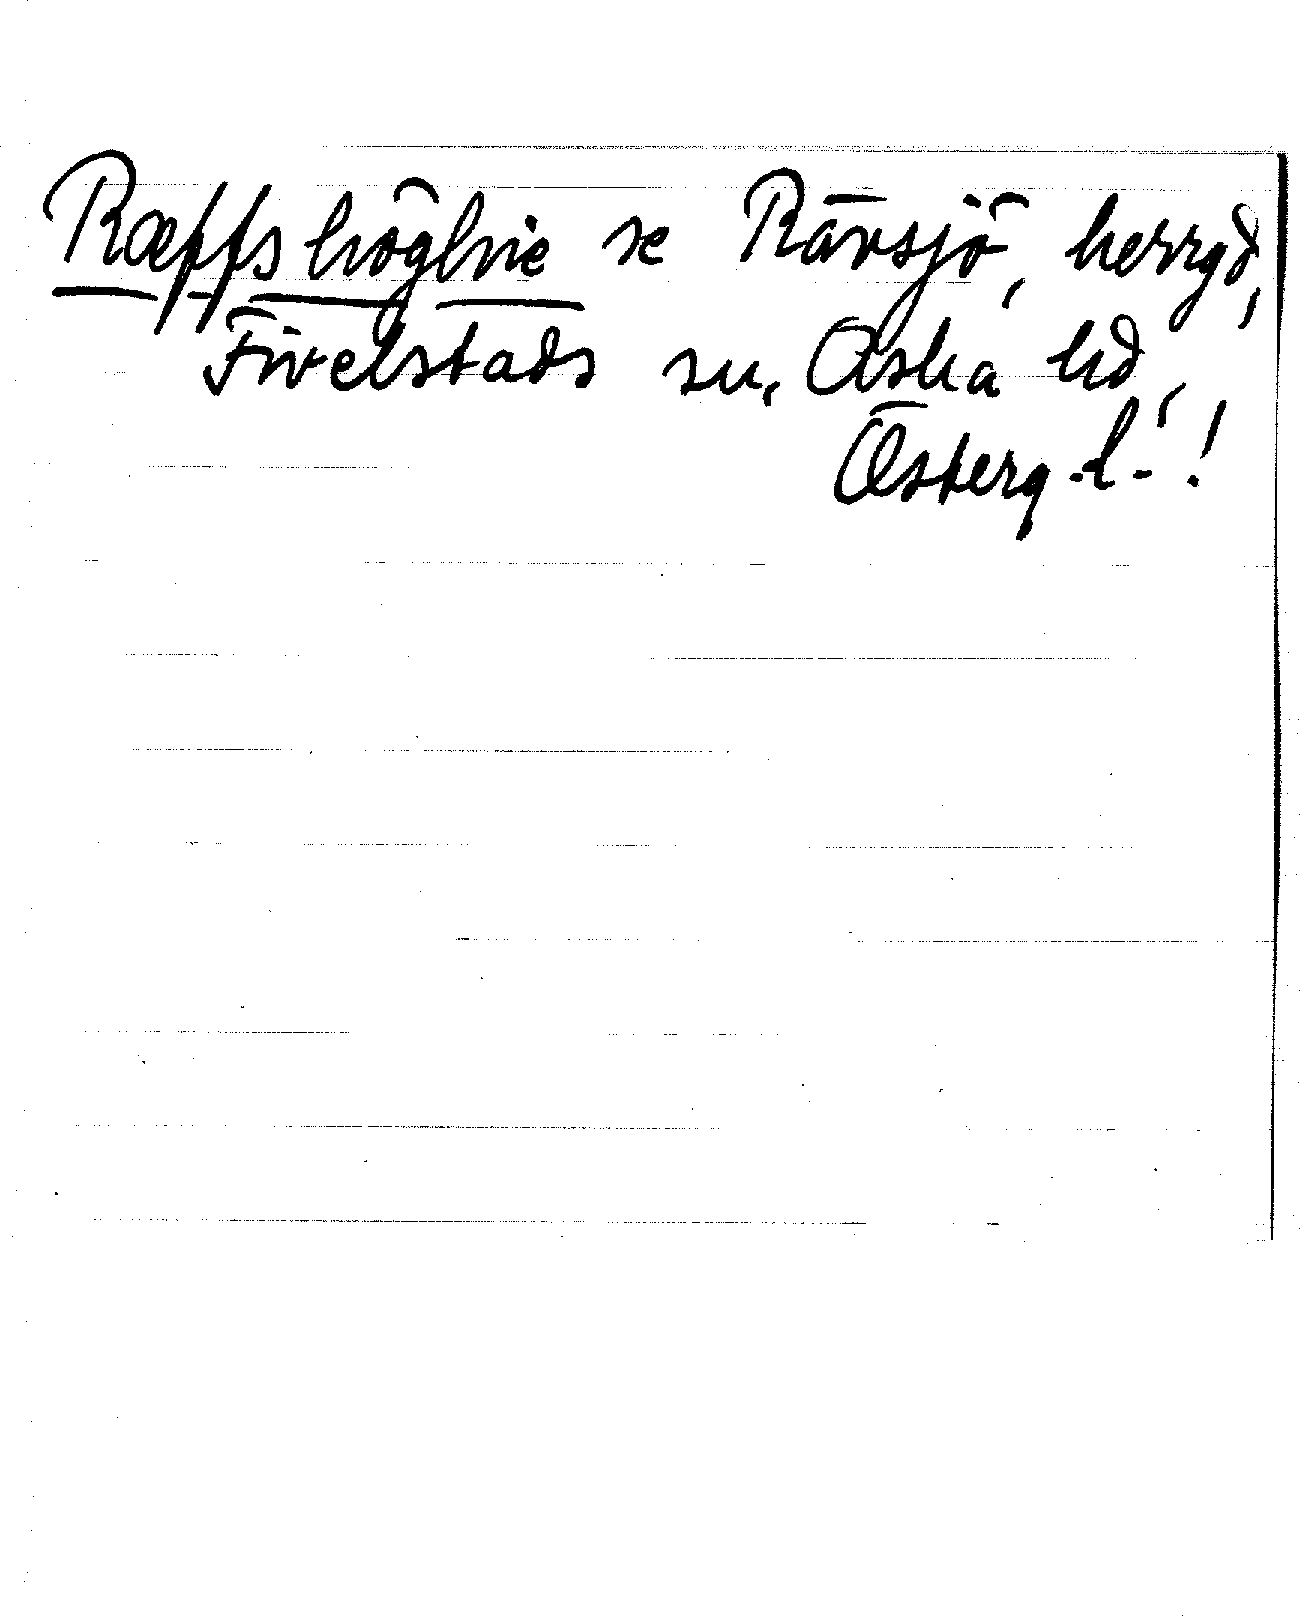 Ræffshöghie se Rävsjö, herrgd,
Fivelstads sn, Aska hd,
Österg.l.!